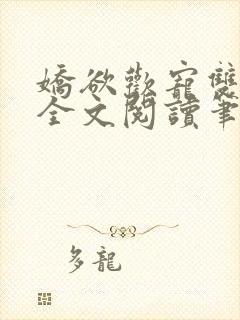 嬌欲歡寵雙
全文閱讀筆
多龍